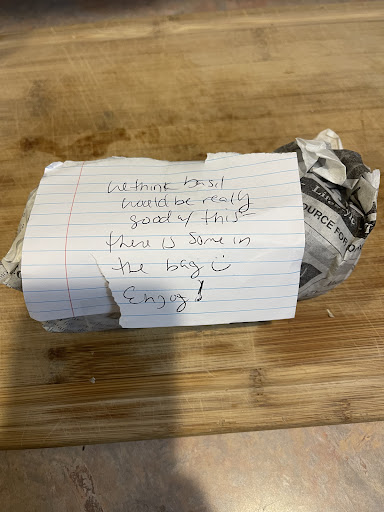 We think basil
would be really
good w/ this –
there is some in
the bag :)
Enjoy!
URCE FOR